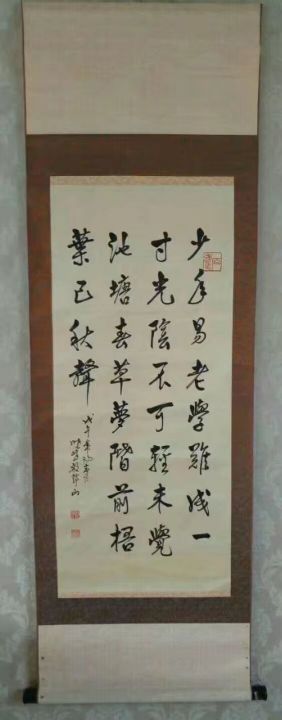 少年易老學難成一
寸光陰不可輕未覺
池塘春草夢階前梧
葉已秋聲
戊午年